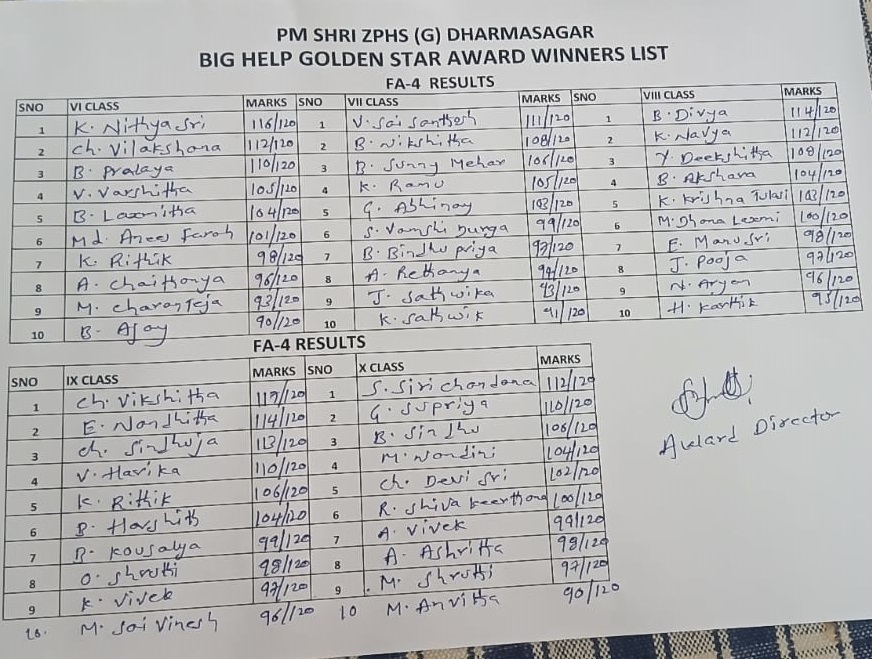 PM SHRI ZPHS (G) DHARMASAGAR
BIG HELP GOLDEN STAR AWARD WINNERS LIST
FA-4 RESULTS
SNO VI CLASS MARKS SNO VII CLASS MARKS SNO VIII CLASS MARKS
1 K. Nithya Sri 116/120 1 V. Sai Santhosh 111/120 1 B. Divya 114/120
2 Ch. Vilakshana 112/120 2 B. Nikshitha 108/120 2 K. Navya 112/120
3 B. Pralaya 110/120 3 B. Sunny Mehar 106/120 3 Y. Deekshitha 108/120
4 V. Varshitha 105/120 4 K. Ramu 105/120 4 B. Akshara 104/120
5 B. Laxmitha 104/120 5 G. Abhinay 103/120 5 K. Krishna Tulasi 103/120
6 Md. Anees Farah 101/120 6 S. Vamshi Durga 99/120 6 M. Dhana Laxmi 100/120
7 K. Rithik 98/120 7 B. Bindhu Priya 97/120 7 E. Manu Sri 98/120
8 A. Chaithanya 96/120 8 A. Rethanya 94/120 8 J. Pooja 97/120
9 M. Charan Teja 93/120 9 J. Sathwika 93/120 9 N. Aryan 96/120
10 B. Ajay 90/120 10 K. Sathwik 91/120 10 H. Karthik 95/120
FA-4 RESULTS
SNO IX CLASS MARKS SNO X CLASS MARKS
1 Ch. Vikshitha 117/120 1 S. Siri Chandana 112/120
2 E. Nandhitha 114/120 2 G. Supriya 110/120
3 Ch. Sindhuja 113/120 3 B. Sindhu 106/120
4 V. Harika 110/120 4 M. Nandini 104/120
5 K. Rithik 106/120 5 Ch. Devi Sri 102/120
6 B. Harshith 104/120 6 R. Shiva Keerthana 100/120
7 B. Kousalya 99/120 7 A. Vivek 99/120
8 O. Shruthi 98/120 8 A. Ashritha 98/120
9 K. Vivek 97/120 9 M. Shruthi 97/120
10. M. Sai Vinesh 96/120 10 M. Anvitha 90/120
Award Director